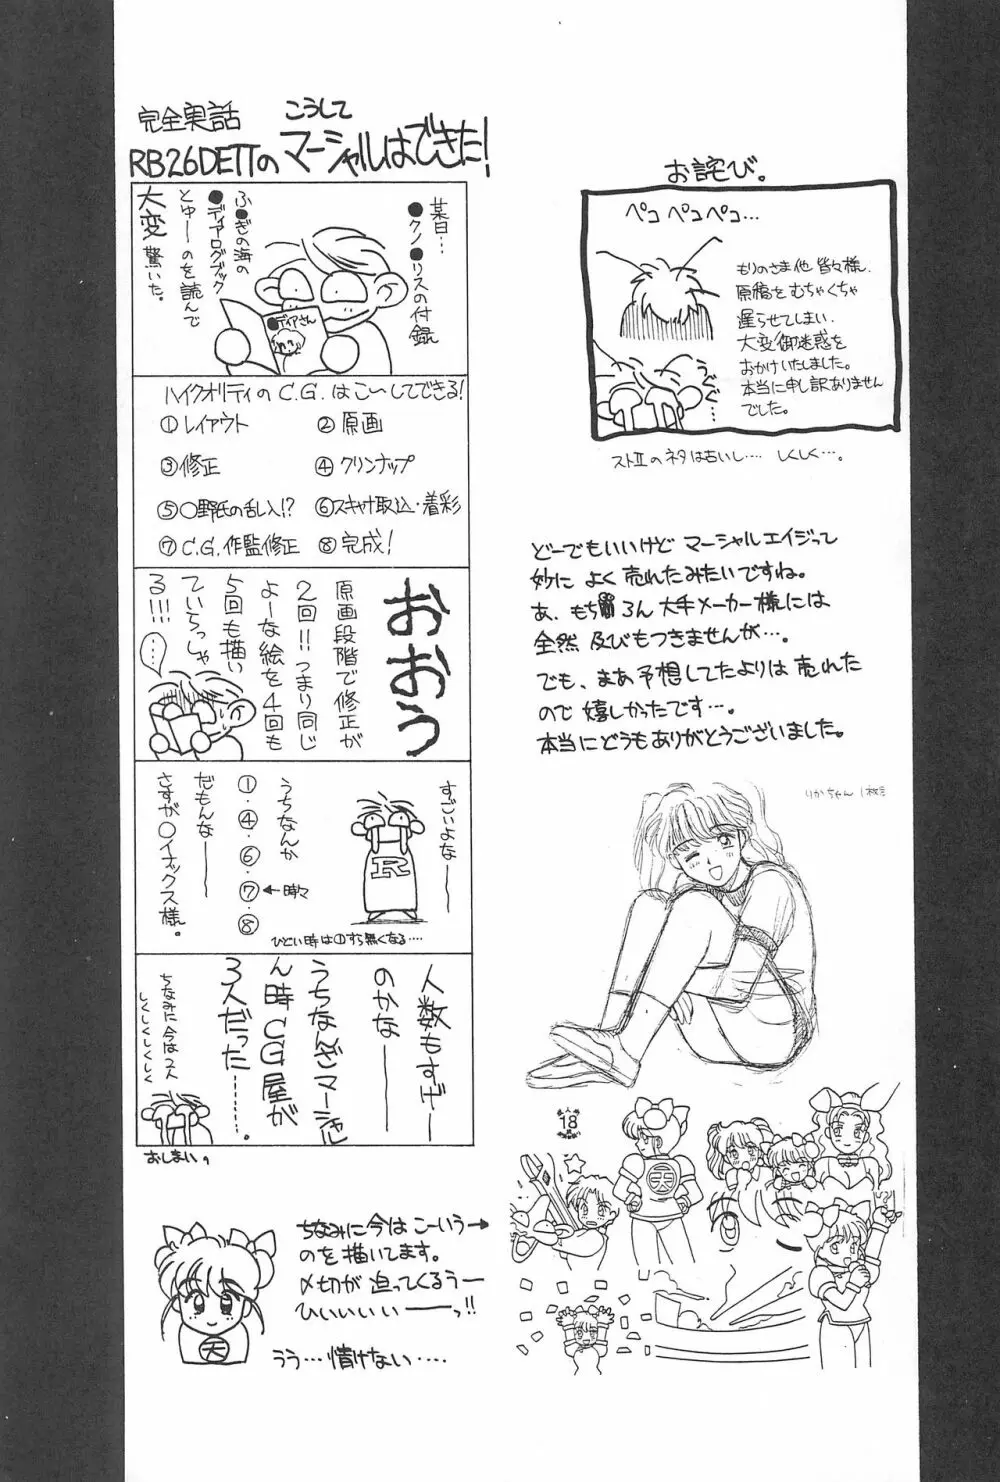 完全実話
こうして
RB26DETTのマーシャルはできた！
某日…
●クノ●リスの付録
ふ●ぎの海の
●ディアログブック
とゆーのを読んで
大変驚いた。
●ディアさん
ハイクオリティのC.G.はこ〜してできる!
①レイアウト
②原画
③修正
④クリンナップ
⑤〇野氏の乱入!?
⑥スキャナ取込・着彩
⑦C.G.作監修正
⑧完成!
おおう
原画段階で修正が
2回!!つまり同じ
よーな絵を4回も
5回も描い
ていらっしゃ
る!!!
(…。)
すごいよな——
R
うちなんか
①・④・⑥・⑦・⑧
←時々
だもんな——
さすが〇イナックス様。
ひどい時は①すら無くなる….
人数もすげー
のかな——
うちなんざマーシャル
ん時CG屋が
3人だった………。
ちなみに今は2人
しくしくしくしく
おしまい。
天
ちなみに今はこーいう→
のを描いてます。
〆切が迫ってくるうー
ひいいいいー——っ!!
うう…情けない….
お詫び。
ペコペコペコ…
もりのさま他皆々様、
原稿をむちゃくちゃ
遅らせてしまい、
大変御迷惑を
おかけいたしました。
本当に申し訳ありません
でした。
うっうっ…
ストⅡのネタは古いし…. しくしく…。
どーでもいいけどマーシャルエイジって
妙によく売れたみたいですね。
あ、もちろん大手メーカー様には
全然及びもつきませんが…。
でも、まあ予想してたよりは売れた
ので嬉しかったです…。
本当にどうもありがとうございました。
りかちゃん
18
天